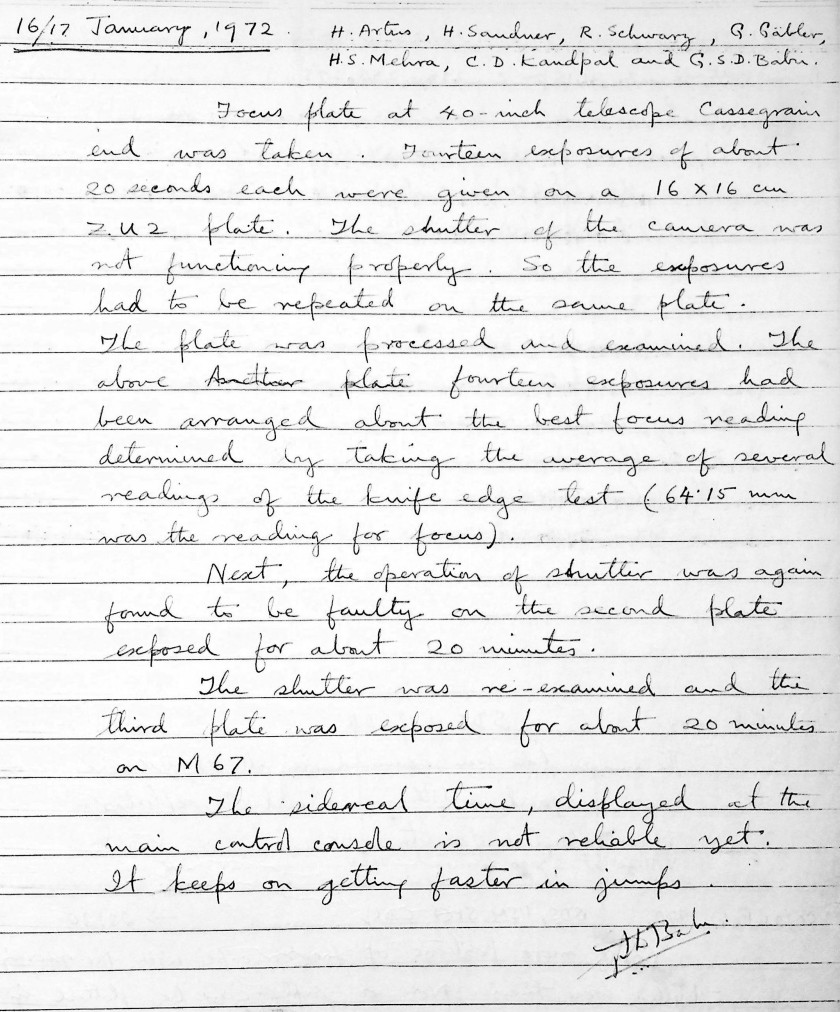 16/17 January, 1972. H. Artus, H. Sandner, R. Schwarz, G. Gäbler,
H.S. Mehra, C.D. Kandpal and G.S.D. Babu.
Focus plate at 40-inch telescope Cassegrain
end was taken. Fourteen exposures of about
20 seconds each were given on a 16 X 16 cm
Z.U 2 plate. The shutter of the camera was
not functioning properly. So the exposures
had to be repeated on the same plate.
The plate was processed and examined. The
above Another plate fourteen exposures had
been arranged about the best focus reading
determined by taking the average of several
readings of the knife edge test (64.15 mm
was the reading for focus).
Next, the operation of shutter was again
found to be faulty on the second plate
exposed for about 20 minutes.
The shutter was re-examined and the
third plate was exposed for about 20 minutes
on M 67.
The sidereal time, displayed at the
main control console is not reliable yet.
It keeps on getting faster in jumps.
Babu.